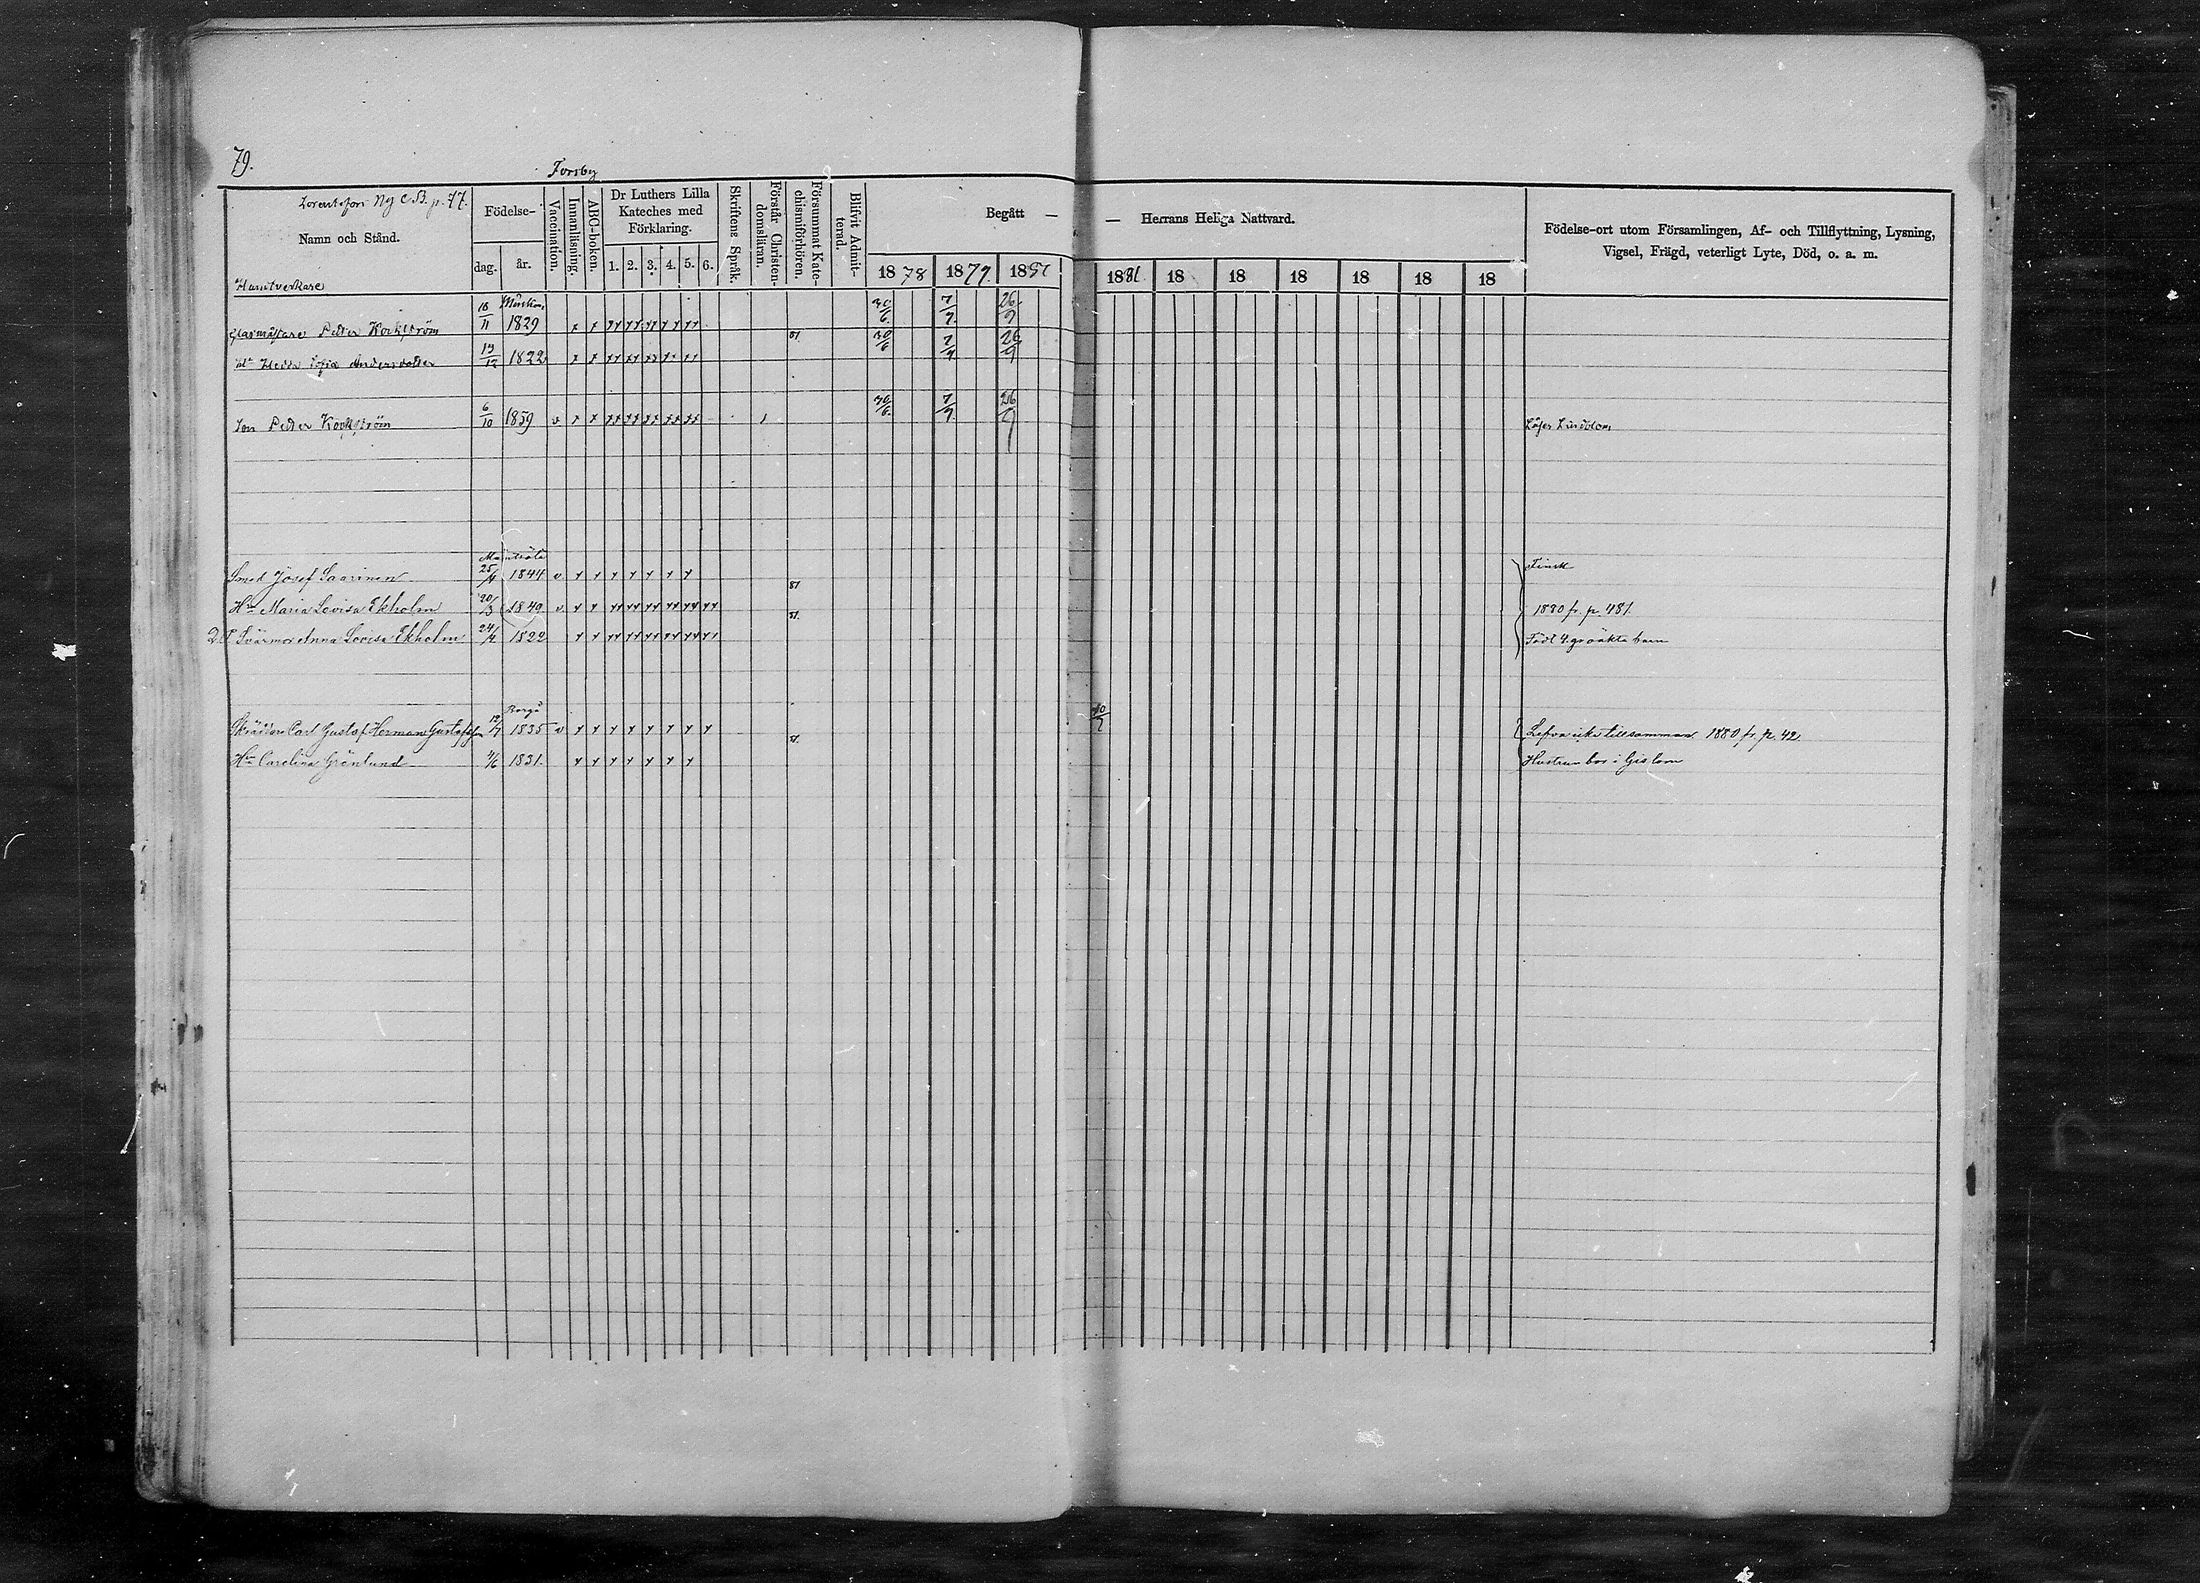 79.
Forsby
Ny C.B. p. 77.
Namn och Stånd.
Födelse-
dag.
år.
Vaccination.
Innanläsning.
ABC-boken.
Dr Luthers Lilla
Kateches med
Förklaring.
1. 2. 3. 4. 5. 6.
Skriftens Språk.
Förstår Christen-
domsläran.
Försummat Kate-
chismiförhören.
Blifvit Admit-
terad.
Begått —
— Herrans Heliga Nattvard.
1878 1879. 1880
1881 18 18 18 18 18 18
Födelse-ort utom Församlingen, Af- och Tillflyttning, Lysning,
Vigsel, Frägd, veterligt Lyte, Död, o. a. m.
Handtverkare
Glasmästare Petter Kockström 18/11 1829 x x xx xx xx xx xx 30/6 7/9 26/9
Hu Hedda Sofia Andersdotter 19/12 1822 x x xx xx xx xx xx 81 30/6 7/9 26/9
Son Petter Kockström 6/10 1859 v x x xx xx xx xx xx 1 30/6 7/9 26/9
Mäntsälä
Smed Josef Saarinen 25/4 1844 v x x x x x x x Finsk
Hn Maria Lovisa Ekholm 20/3 1849 v x x xx xx xx xx xx xx 81 1880 fr. p. 481
Svärmor Anna Lovisa Ekholm 24/2 1822 x x xx xx xx xx xx 81. Födt 4. gr oäkta barn
Borgå
Skräddare Carl Gustaf Herman Gustafsson 12/7 1835 v x x x x x x x x 10/7 Lefva icke tillsamman 1880 fr. p. 42.
Hn Carolina Grönlund 4/6 1831. x x x x x x x 81. Hustrun bor i Gislom